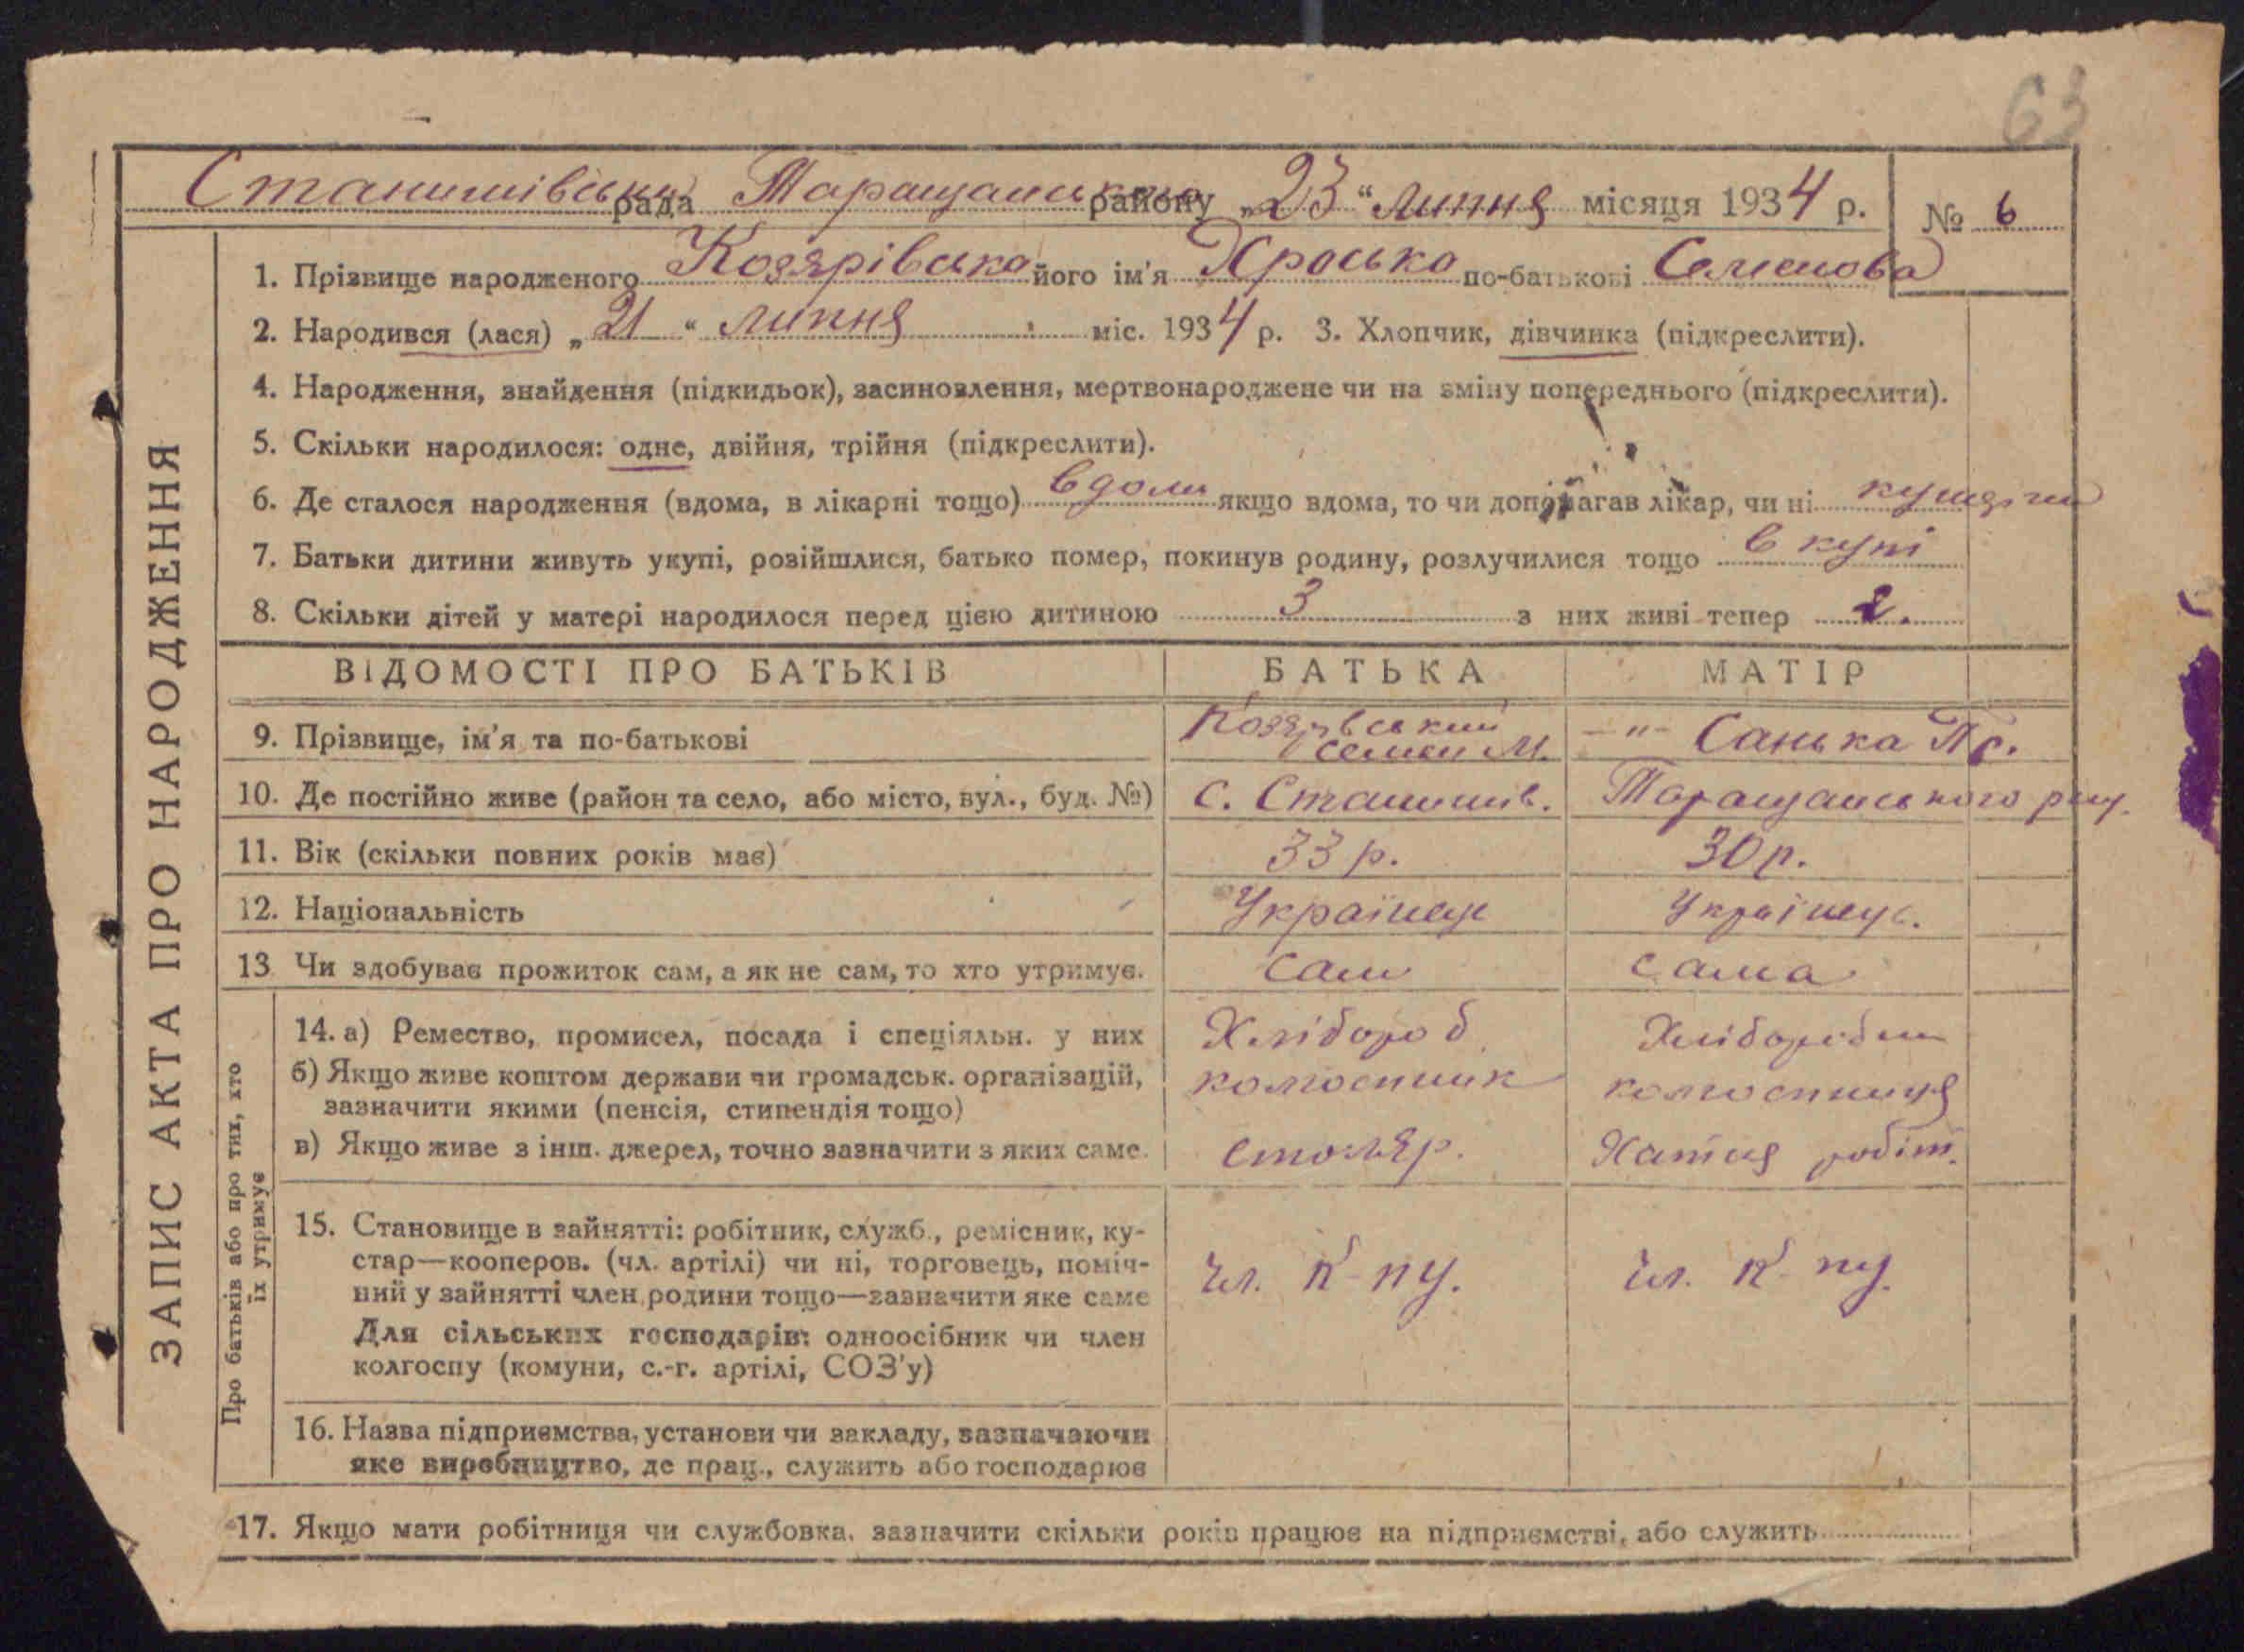 63
Станишівська рада Таращанськ району „23“ липня місяця 1934 р. № 6
1. Прізвище народженого Козярівська його ім'я Хроська по-батькові Семенова
2. Народився (лася) „21“ липня міс. 1934 р. 3. Хлопчик, дівчинка (підкреслити).
4. Народження, знайдення (підкидьок), засиновлення, мертвонароджене чи на зміну попереднього (підкреслити).
5. Скільки народилося: одне, двійня, трійня (підкреслити).
6. Де сталося народження (вдома, в лікарні тощо) вдома якщо вдома, то чи допомагав лікар, чи ні
7. Батьки дитини живуть укупі, розійшлися, батько помер, покинув родину, розлучилися тощо в купі
8. Скільки дітей у матері народилося перед цією дитиною 3 з них живі тепер 2.
ВІДОМОСТІ ПРО БАТЬКІВ БАТЬКА МАТІР
9. Прізвище, ім'я та по-батькові Козярівський Семен М. —"— Санька Пр.
10. Де постійно живе (район та село, або місто, вул., буд. №) с. Станишів. Таращанського рну.
11. Вік (скільки повних років має) 33 р. 30 р.
12. Національність Українець Українець.
13 Чи здобуває прожиток сам, а як не сам, то хто утримує. сам сама
14. а) Ремество, промисел, посада і спеціяльн. у них Хлібороб Хліборобка
б) Якщо живе коштом держави чи громадськ. організацій, колгоспник колгоспниця
зазначити якими (пенсія, стипендія тощо)
в) Якщо живе з інш. джерел, точно зазначити з яких саме. столяр. Хатня робіт.
15. Становище в зайнятті: робітник, служб., ремісник, ку-
стар—кооперов. (чл. артілі) чи ні, торговець, поміч- чл. к-пу. чл. к-пу.
ний у зайнятті член родини тощо—зазначити яке саме
Для сільських господарів: одноосібник чи член
колгоспу (комуни, с.-г. артілі, СОЗ'у)
16. Назва підприємства, установи чи закладу, зазначаючи
яке виробництво, де прац., служить або господарює
17. Якщо мати робітниця чи службовка, зазначити скільки років працює на підприємстві, або служить
ЗАПИС АКТА ПРО НАРОДЖЕННЯ
Про батьків або про тих, хто
їх утримує